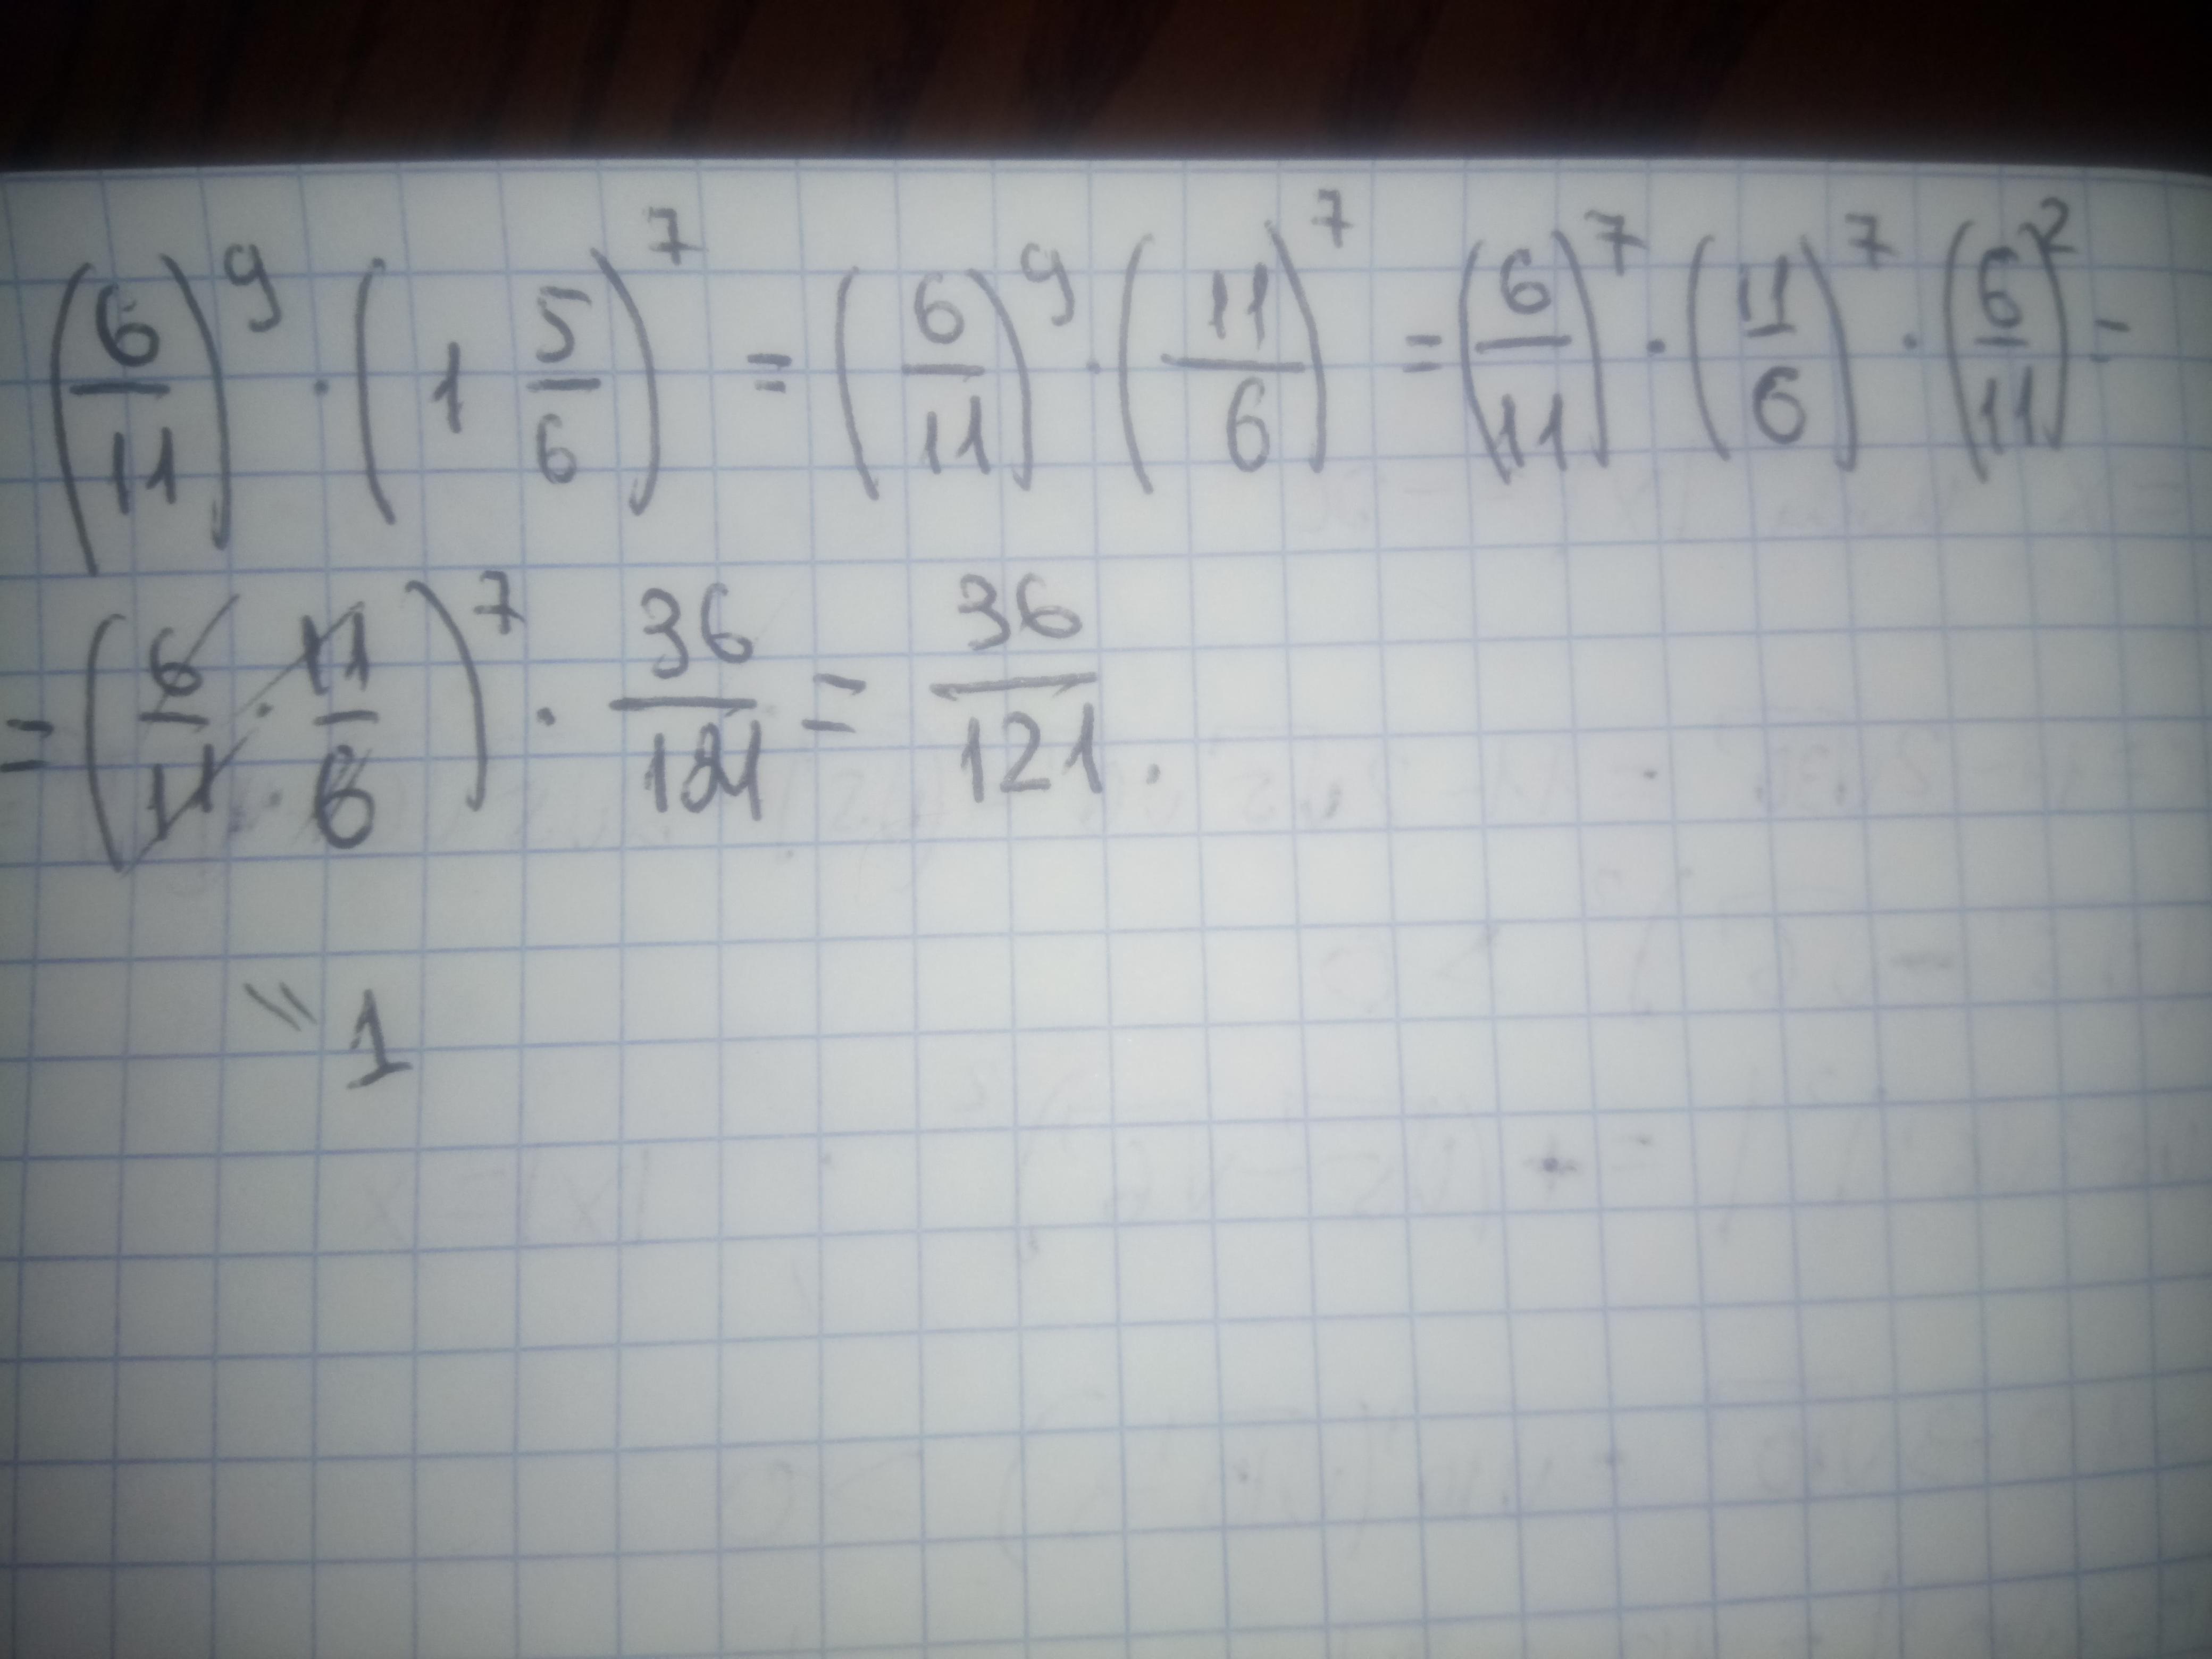 (6/11)^9 · (1 5/6)^7 = (6/11)^9 · (11/6)^7 = (6/11)^7 · (11/6)^7 · (6/11)^2 =
= (6/11 · 11/6)^7 · 36/121 = 36/121.
" 1